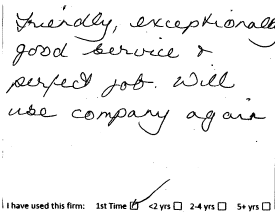 Friendly, exceptionally
good service &
perfect job. Will
use company again
I have used this firm: 1st Time ☑ <2 yrs ☐ 2-4 yrs ☐ 5+ yrs ☐